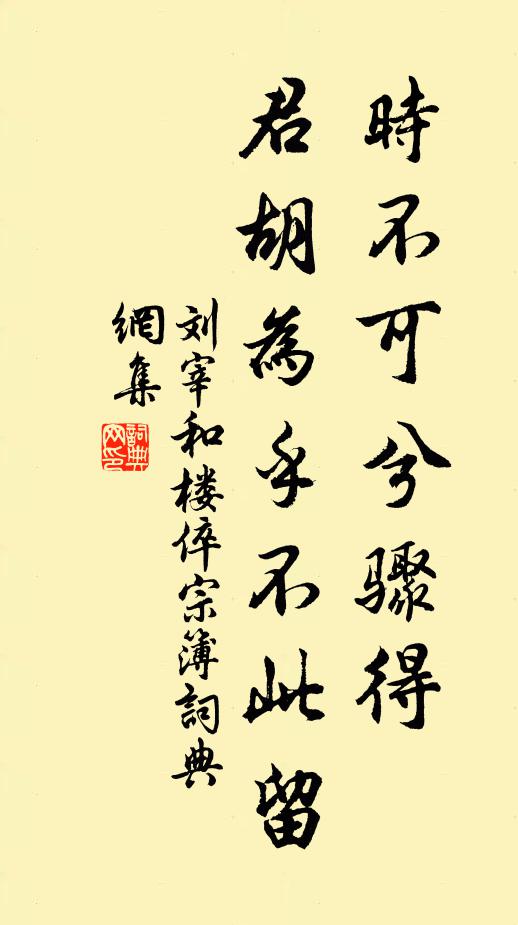 時不可兮驟得
君胡為乎不此留
刘宰和楼倅宗簿詞典
網集
詞典
网印